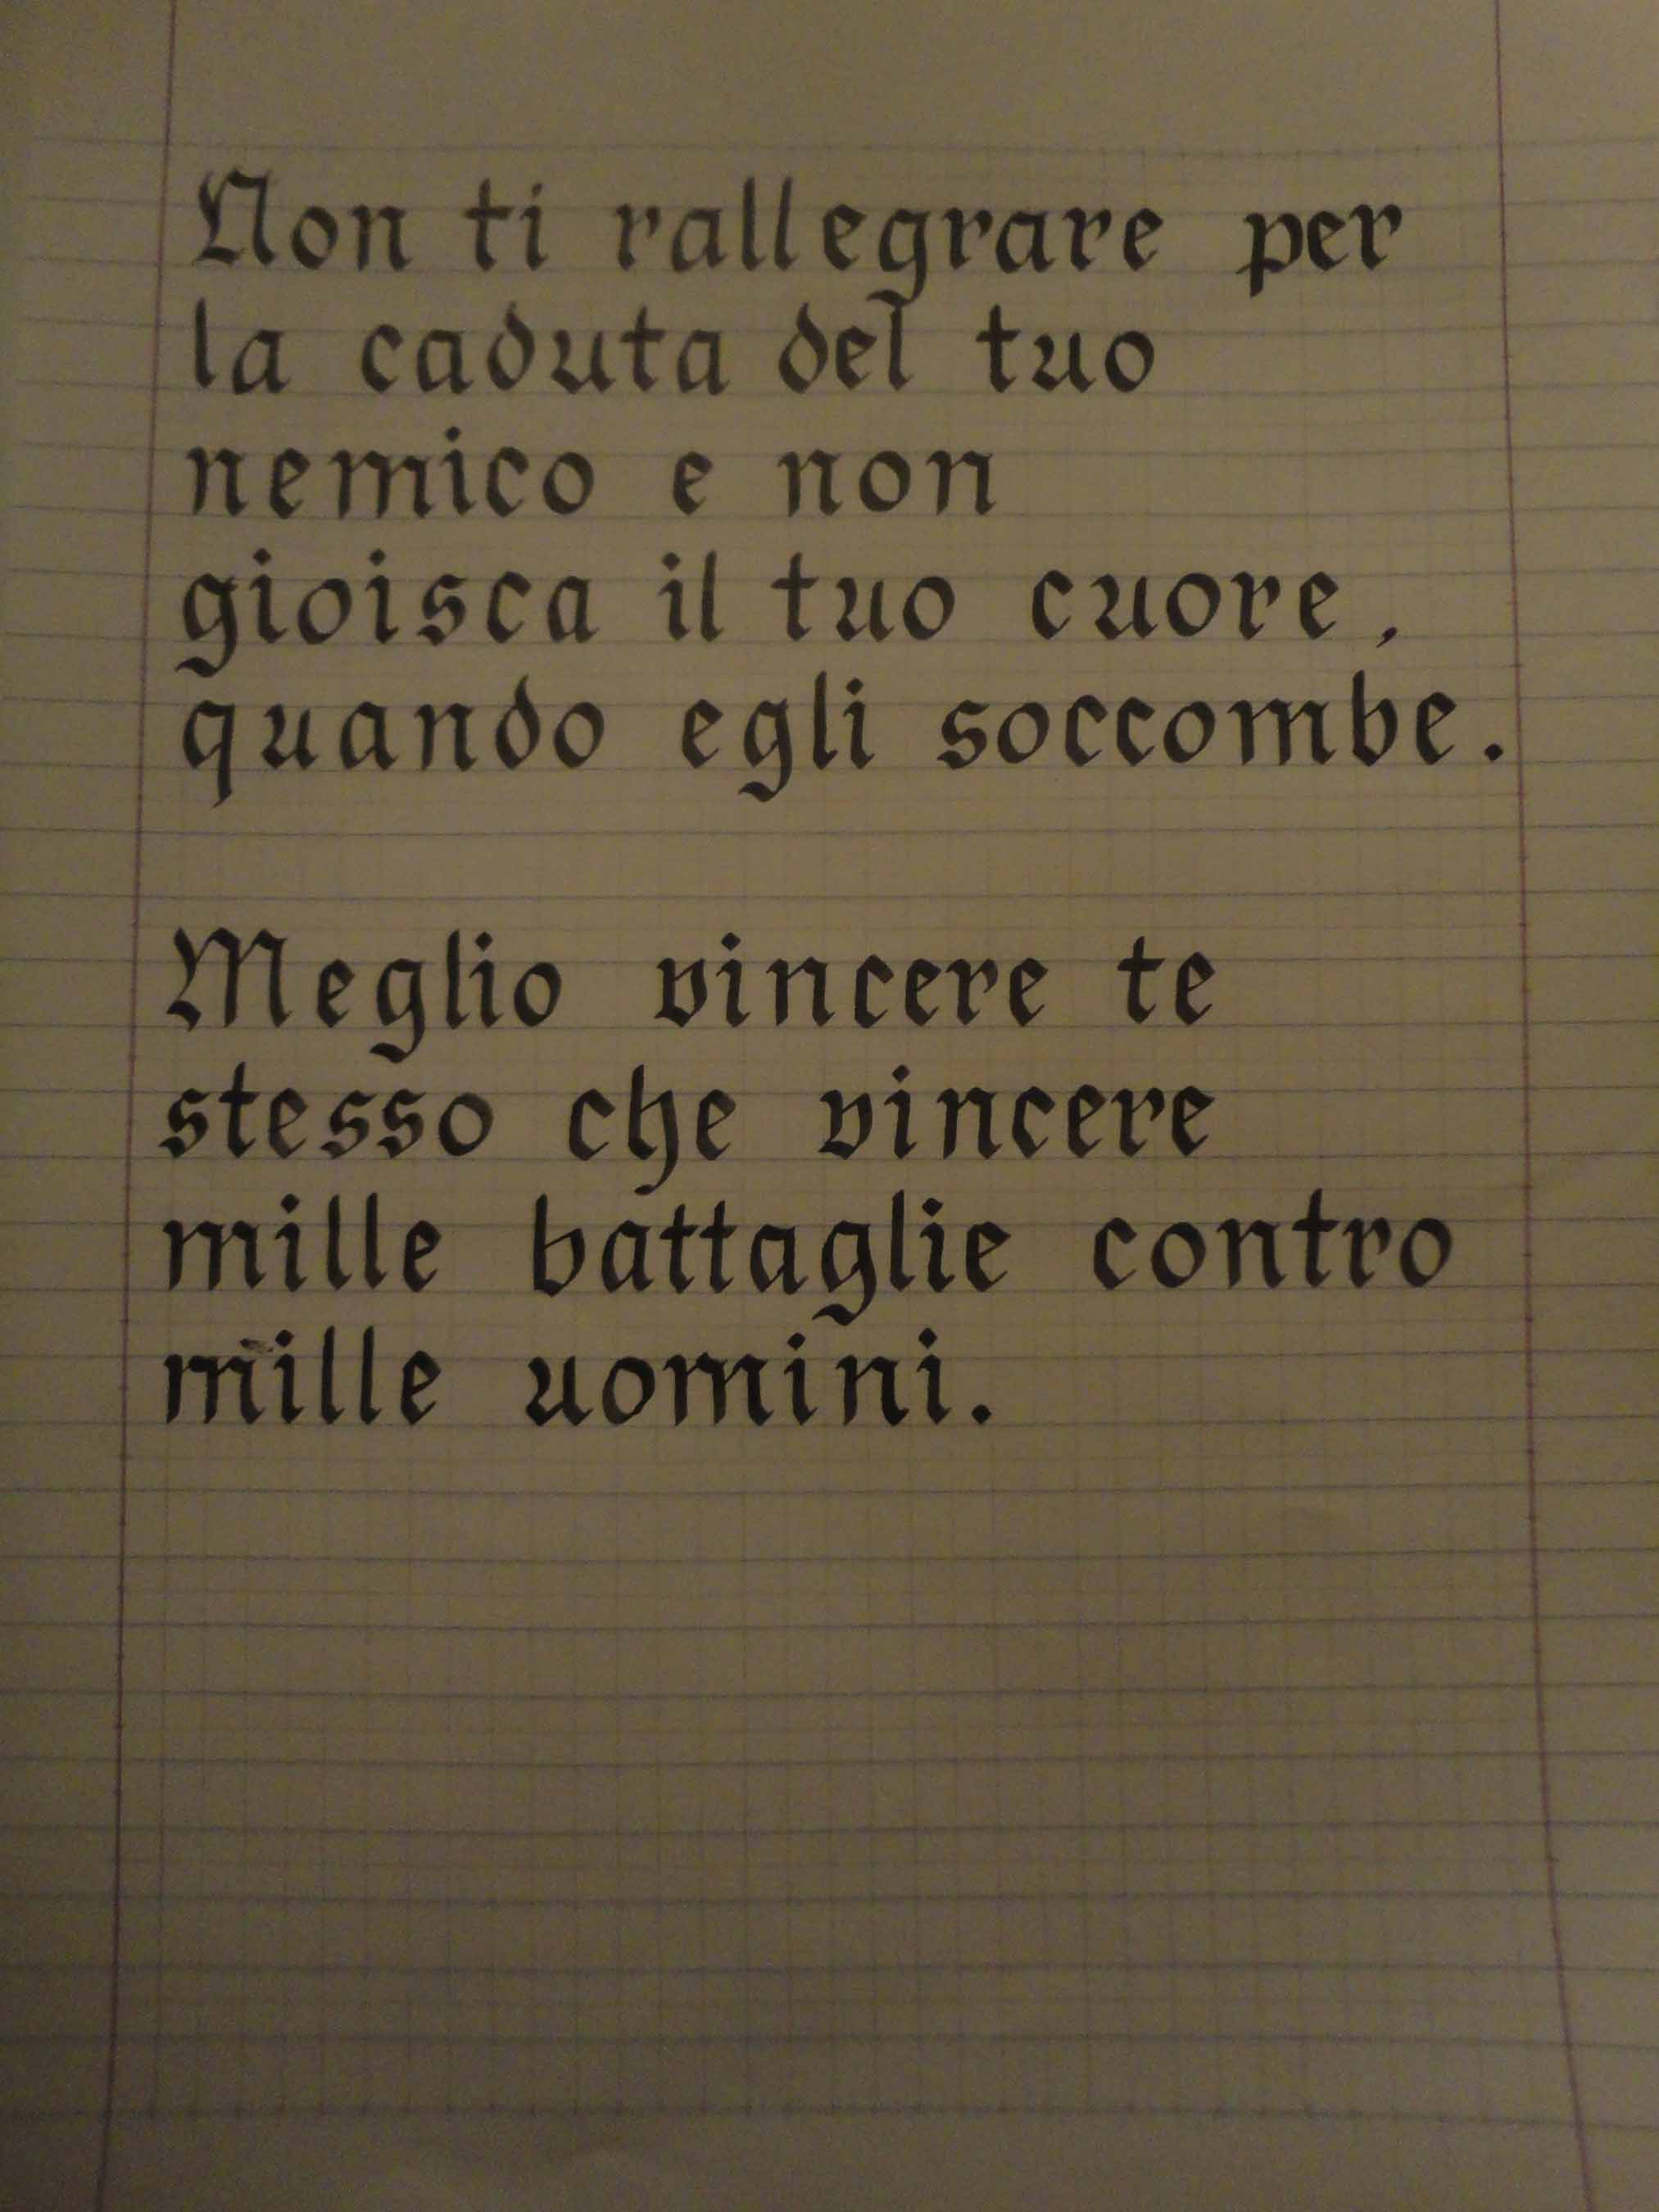 Non ti rallegrare per
la caduta del tuo
nemico e non
gioisca il tuo cuore,
quando egli soccombe.
Meglio vincere te
stesso che vincere
mille battaglie contro
mille uomini.